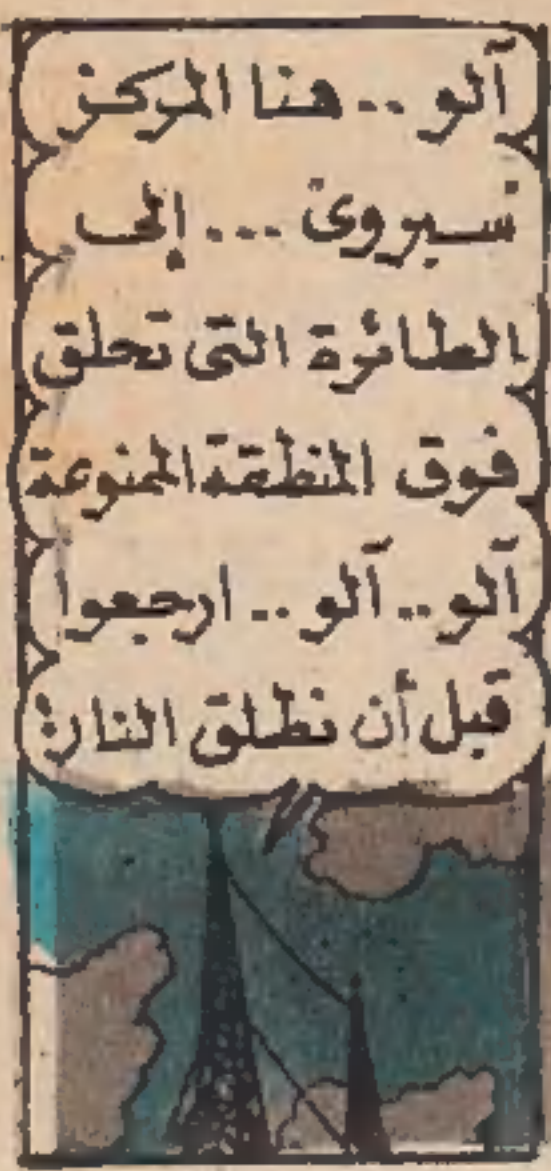 آلو .. هنا المركز
سيروى ... إلى
الطائرة التى تحلق
فوق المنطقة الممنوعة
آلو .. آلو .. ارجعوا
قبل أن نطلق النار!